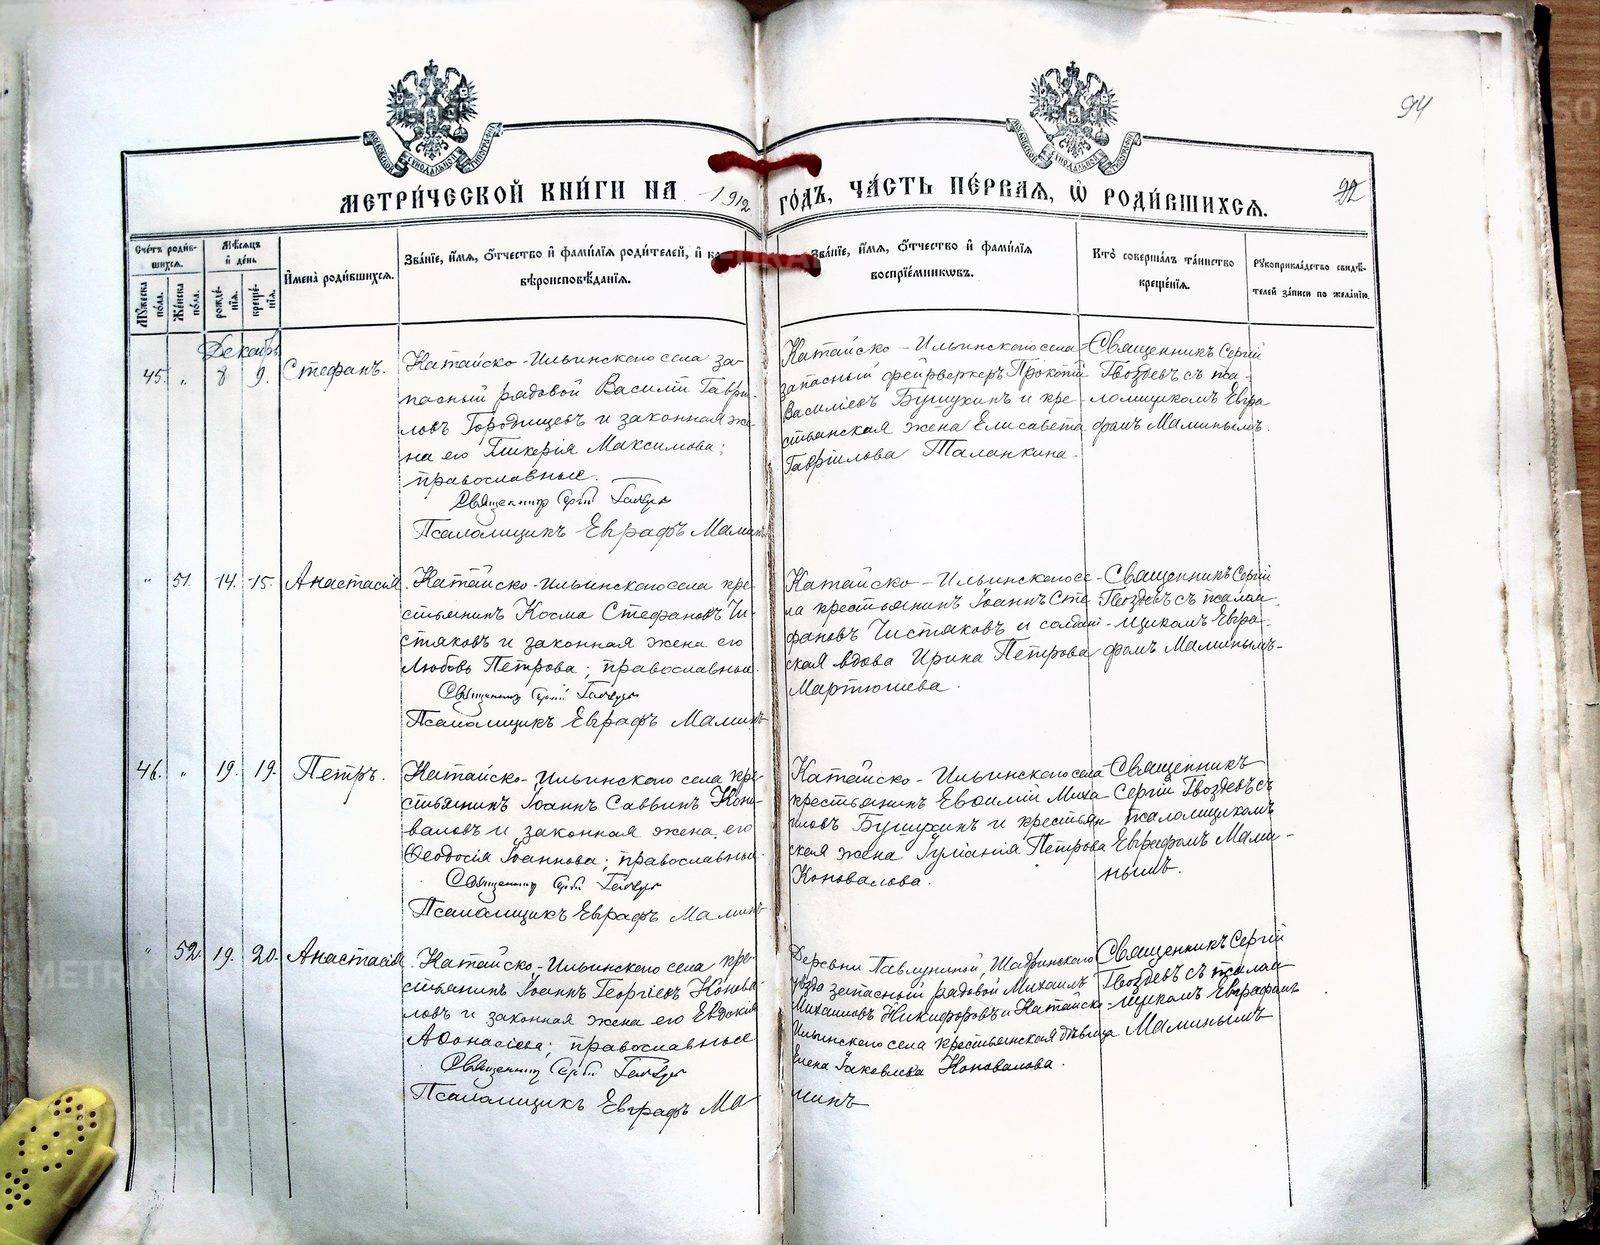 94
92
МЕТРИ́ЧЕСКОЙ КНИ́ГИ НА 1912 ГО́ДЪ, ЧА́СТЬ ПЕ́РВАЯ, Ѽ РОДИ́ВШИХСЯ.
Сче́тъ роди́вшихся.
Мѣ́сяцъ и҆ де́нь
Мꙋ́жеска по́ла.
Же́нска по́ла.
рожде́нїя.
креще́нїя.
И҆мена̀ роди́вшихся.
Зва́нїе, и҆́мя, ѻ҆́тчество и҆ фами́лїя роди́телей, и҆
вѣ́роисповѣ́данїя.
Зва́нїе, и҆́мя, ѻ҆́тчество и҆ фами́лїя
воспрїе́мниковъ.
Кто̀ соверша́лъ та́инство
креще́нїя.
Рꙋкоприкла́дство свидѣ́-
телей за́писи по жела́нїю.
Декабрь
45. " 8 9. Стефанъ.
Катайско-Ильинскаго села за-
пасный рядовой Василій Гаври-
ловъ Городищевъ и законная же-
на его Гликерія Максимова;
православные.
Священникъ Сергій Гвоздевъ
Псаломщикъ Евграфъ Маминъ
Катайско-Ильинскаго села
запасный фейрверкеръ Прокопій
Васильевъ Бушухинъ и кре-
стьянская жена Елисавета
Гавріилова Таланкина.
Священникъ Сергій
Гвоздевъ съ пса-
ломщикомъ Евгра-
фомъ Маминымъ.
" 51. 14. 15. Анастасія.
Катайско-Ильинскаго села кре-
стьянинъ Косма Стефановъ Чи-
стяковъ и законная жена его
Любовь Петрова; православные.
Священникъ Сергій Гвоздевъ
Псаломщикъ Евграфъ Маминъ
Катайско-Ильинскаго се-
ла крестьянинъ Іоаннъ Сте-
фановъ Чистяковъ и солдат-
ская вдова Ирина Петрова
Мартюшева.
Священникъ Сергій
Гвоздевъ съ псалом-
щикомъ Евгра-
фомъ Маминымъ.
46. " 19. 19. Петръ.
Катайско-Ильинскаго села кре-
стьянинъ Іоаннъ Саввинъ Коно-
валовъ и законная жена его
Ѳеодосія Іоаннова; православные.
Священникъ Сергій Гвоздевъ
Псаломщикъ Евграфъ Маминъ
Катайско-Ильинскаго села
крестьянинъ Евѳимій Миха-
иловъ Бушухинъ и крестьян-
ская жена Іуліанія Петрова
Коновалова.
Священникъ
Сергій Гвоздевъ съ
псаломщикомъ
Евграфомъ Мами-
нымъ.
" 52. 19. 20. Анастасія.
Катайско-Ильинскаго села кре-
стьянинъ Іоаннъ Георгіевъ Конова-
ловъ и законная жена его Евдокія
Аѳонасіева; православные
Священникъ Сергій Гвоздевъ
Псаломщикъ Евграфъ Ма-
минъ
Деревни Павлуниной, Шадринскаго
уѣзда запасный рядовой Михаилъ
Михаиловъ Никифоровъ и Катайско-
Ильинскаго села крестьянская дѣвица
Елена Іаковлева Коновалова.
Священникъ Сергій
Гвоздевъ съ псалом-
щикомъ Евграфомъ
Маминымъ